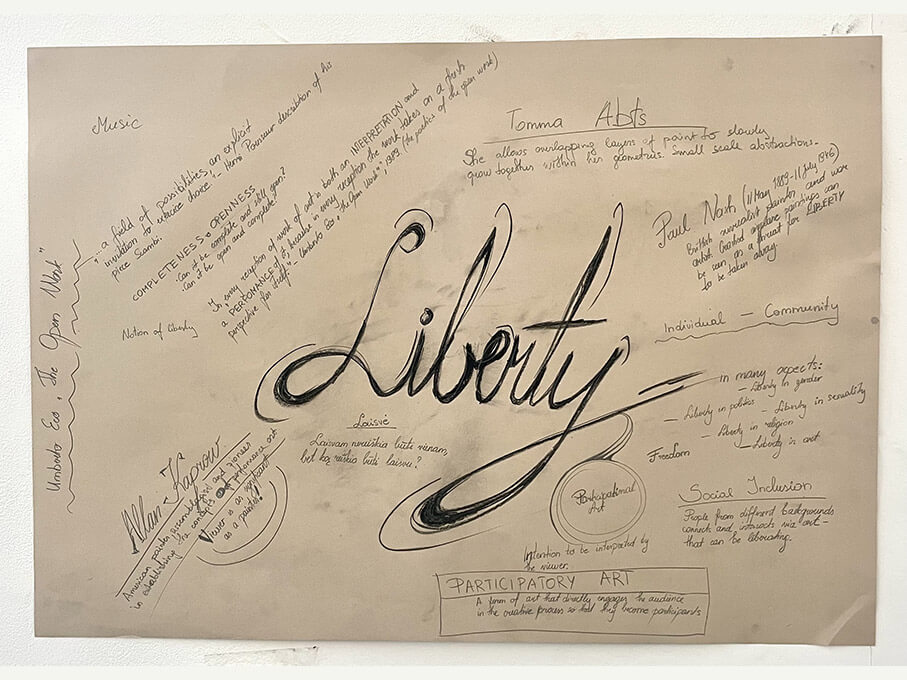 Music
"...a field of possibilities, an explicit
invitation to exercise choice." - Henri Pousseur description of his
piece Scambi.
COMPLETENESS & OPENNESS
Can it be complete and still open?
Can it be open and complete?
In every reception of work of art is both an INTERPRETATION and
a PERFORMANCE of it, because in every reception the work takes on a fresh
perspective for itself. - Umberto Eco, "The Open Work", 1989. (the poetics of the open work)
Umberto Eco, "The Open Work"
Notion of Liberty
Tomma Abts
She allows overlapping layers of paint to slowly
grow together within her geometries. Small scale abstractions.
Paul Nash (11 May 1889-11 July 1946)
British surrealist painter and war
artist. Crashed airplane paintings can
be seen as a threat for LIBERTY
to be taken away.
Liberty
Individual - Community
in many aspects:
- Liberty in gender
- Liberty in politics
- Liberty in sexuality
- Liberty in religion
Freedom
- Liberty in art
Laisvė
Laisvam nereiškia būti vienam,
bet ką reiškia būti laisvu?
Allan Kaprow
American painter, assemblagist and pioneer
in establishing the concepts of performance art
Viewer is as significant
as a painter
Participational
Art
Intention to be interpreted by
the viewer.
PARTICIPATORY ART
A form of art that directly engages the audience
in the creative process so that they become participants
Social Inclusion
People from different backgrounds
connects and interacts via art -
that can be liberating.